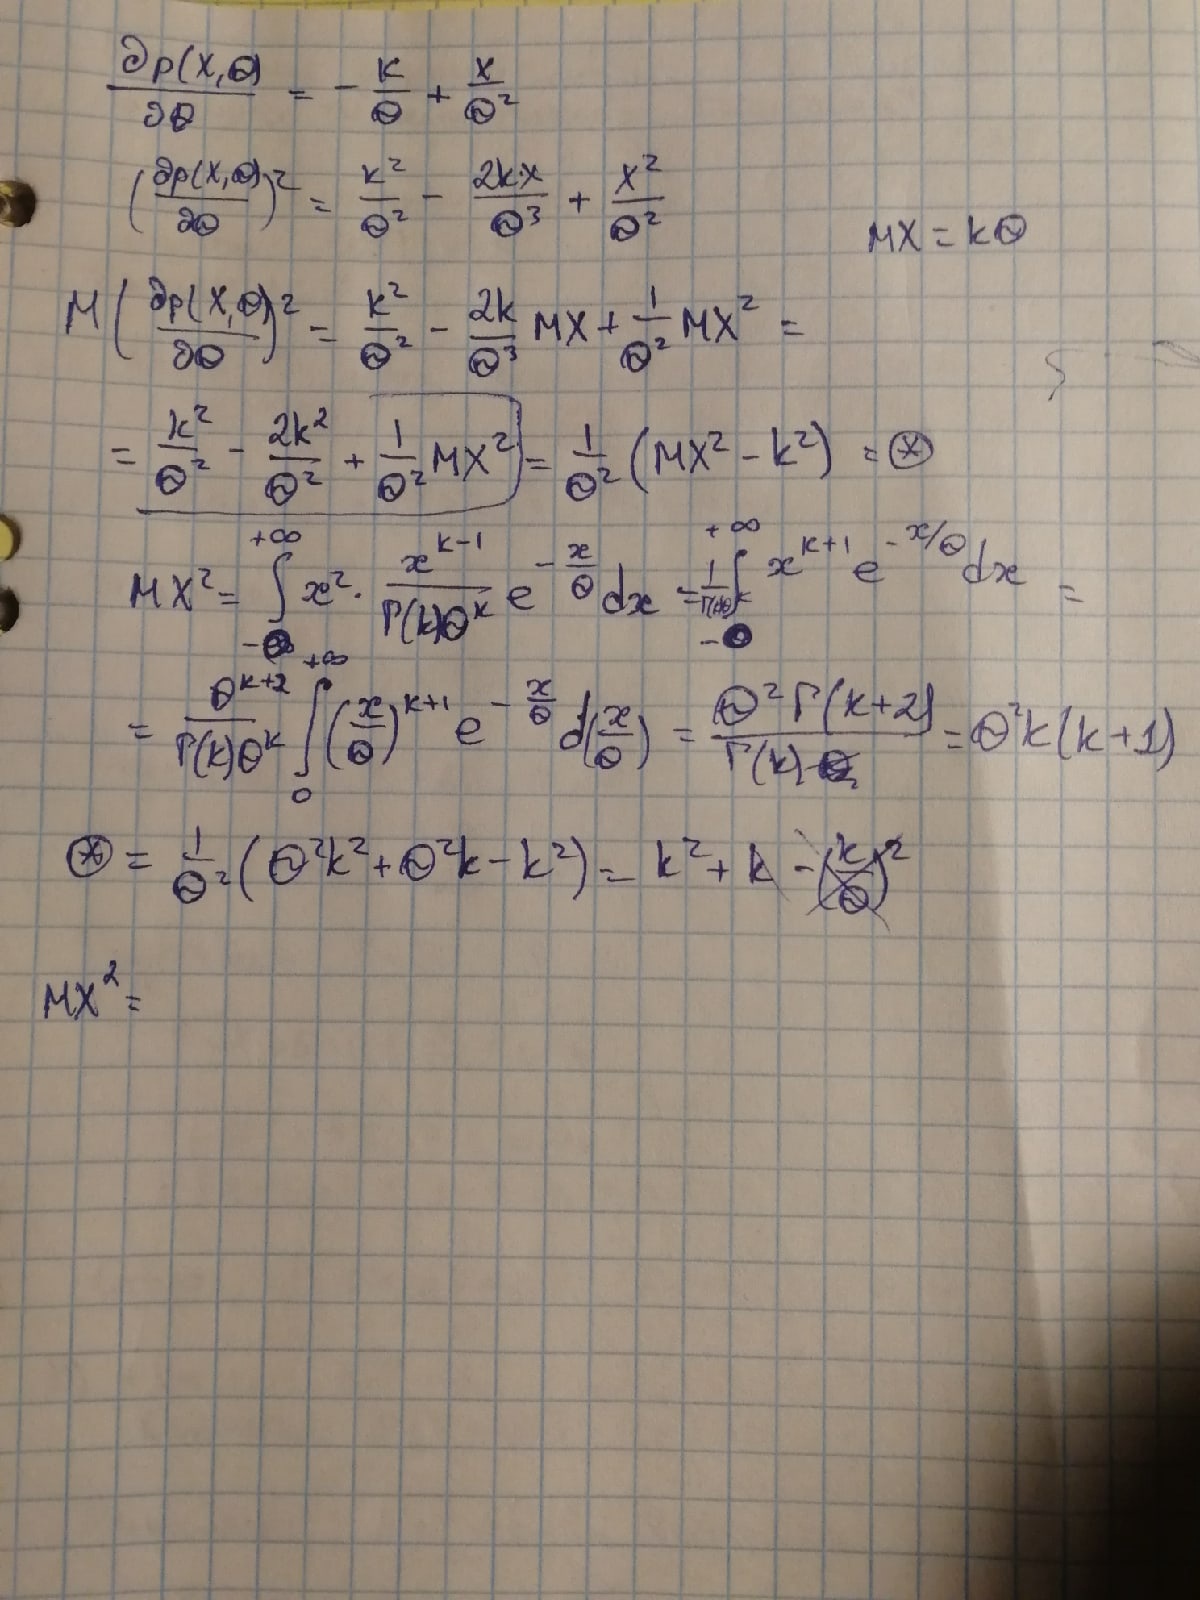 ∂p(X,Θ) / ∂Θ = - k/Θ + X/Θ²
(∂p(X,Θ) / ∂Θ)² = k²/Θ² - 2kX/Θ³ + X²/Θ²
MX = kΘ
M(∂p(X,Θ) / ∂Θ)² = k²/Θ² - 2k/Θ³ MX + 1/Θ² MX² =
= k²/Θ² - 2k²/Θ² + 1/Θ² MX² = 1/Θ² (MX² - k²) = ⊛
MX² = ∫ +∞ x² · x^(k-1) / Γ(k)Θ^k e^(-x/Θ) dx = 1/Γ(k)Θ^k ∫ +∞ x^(k+1) e^(-x/Θ) dx =
= Θ^(k+2) / Γ(k)Θ^k ∫_0^(+∞) (x/Θ)^(k+1) e^(-x/Θ) d(x/Θ) = Θ² Γ(k+2) / Γ(k) = Θ²k(k+1)
⊛ = 1/Θ² (Θ²k² + Θ²k - k²) = k² + k - (k/Θ)²
MX² =